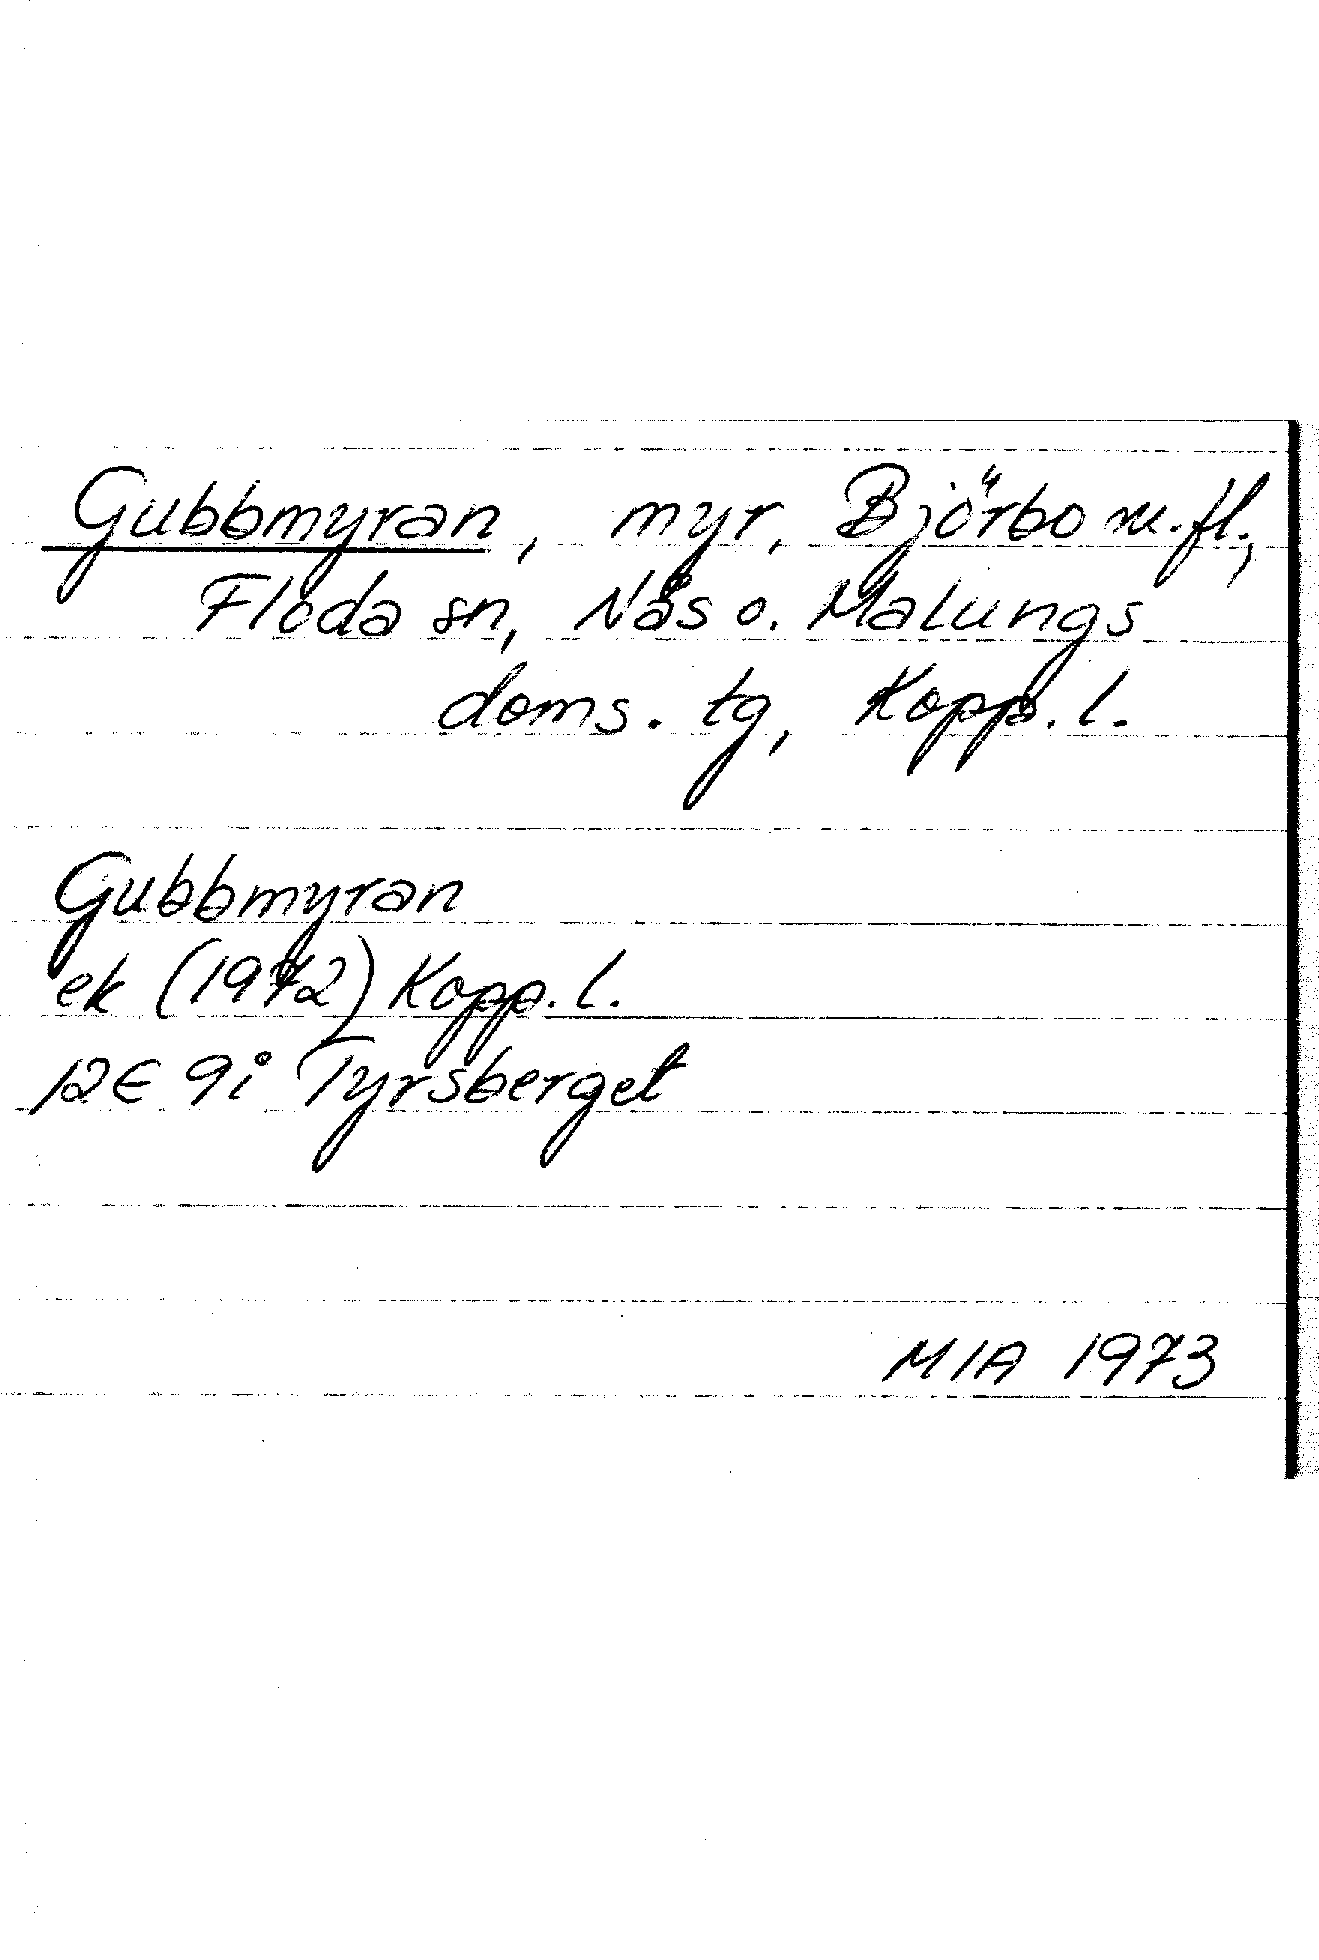 Gubbmyran, myr, Björbo m.fl.,
Floda sn, Nås o. Malungs
doms. tg, Kopp. l.
Gubbmyran
ek (1972) Kopp. l.
12E 9i Tyrsberget
MIA 1973